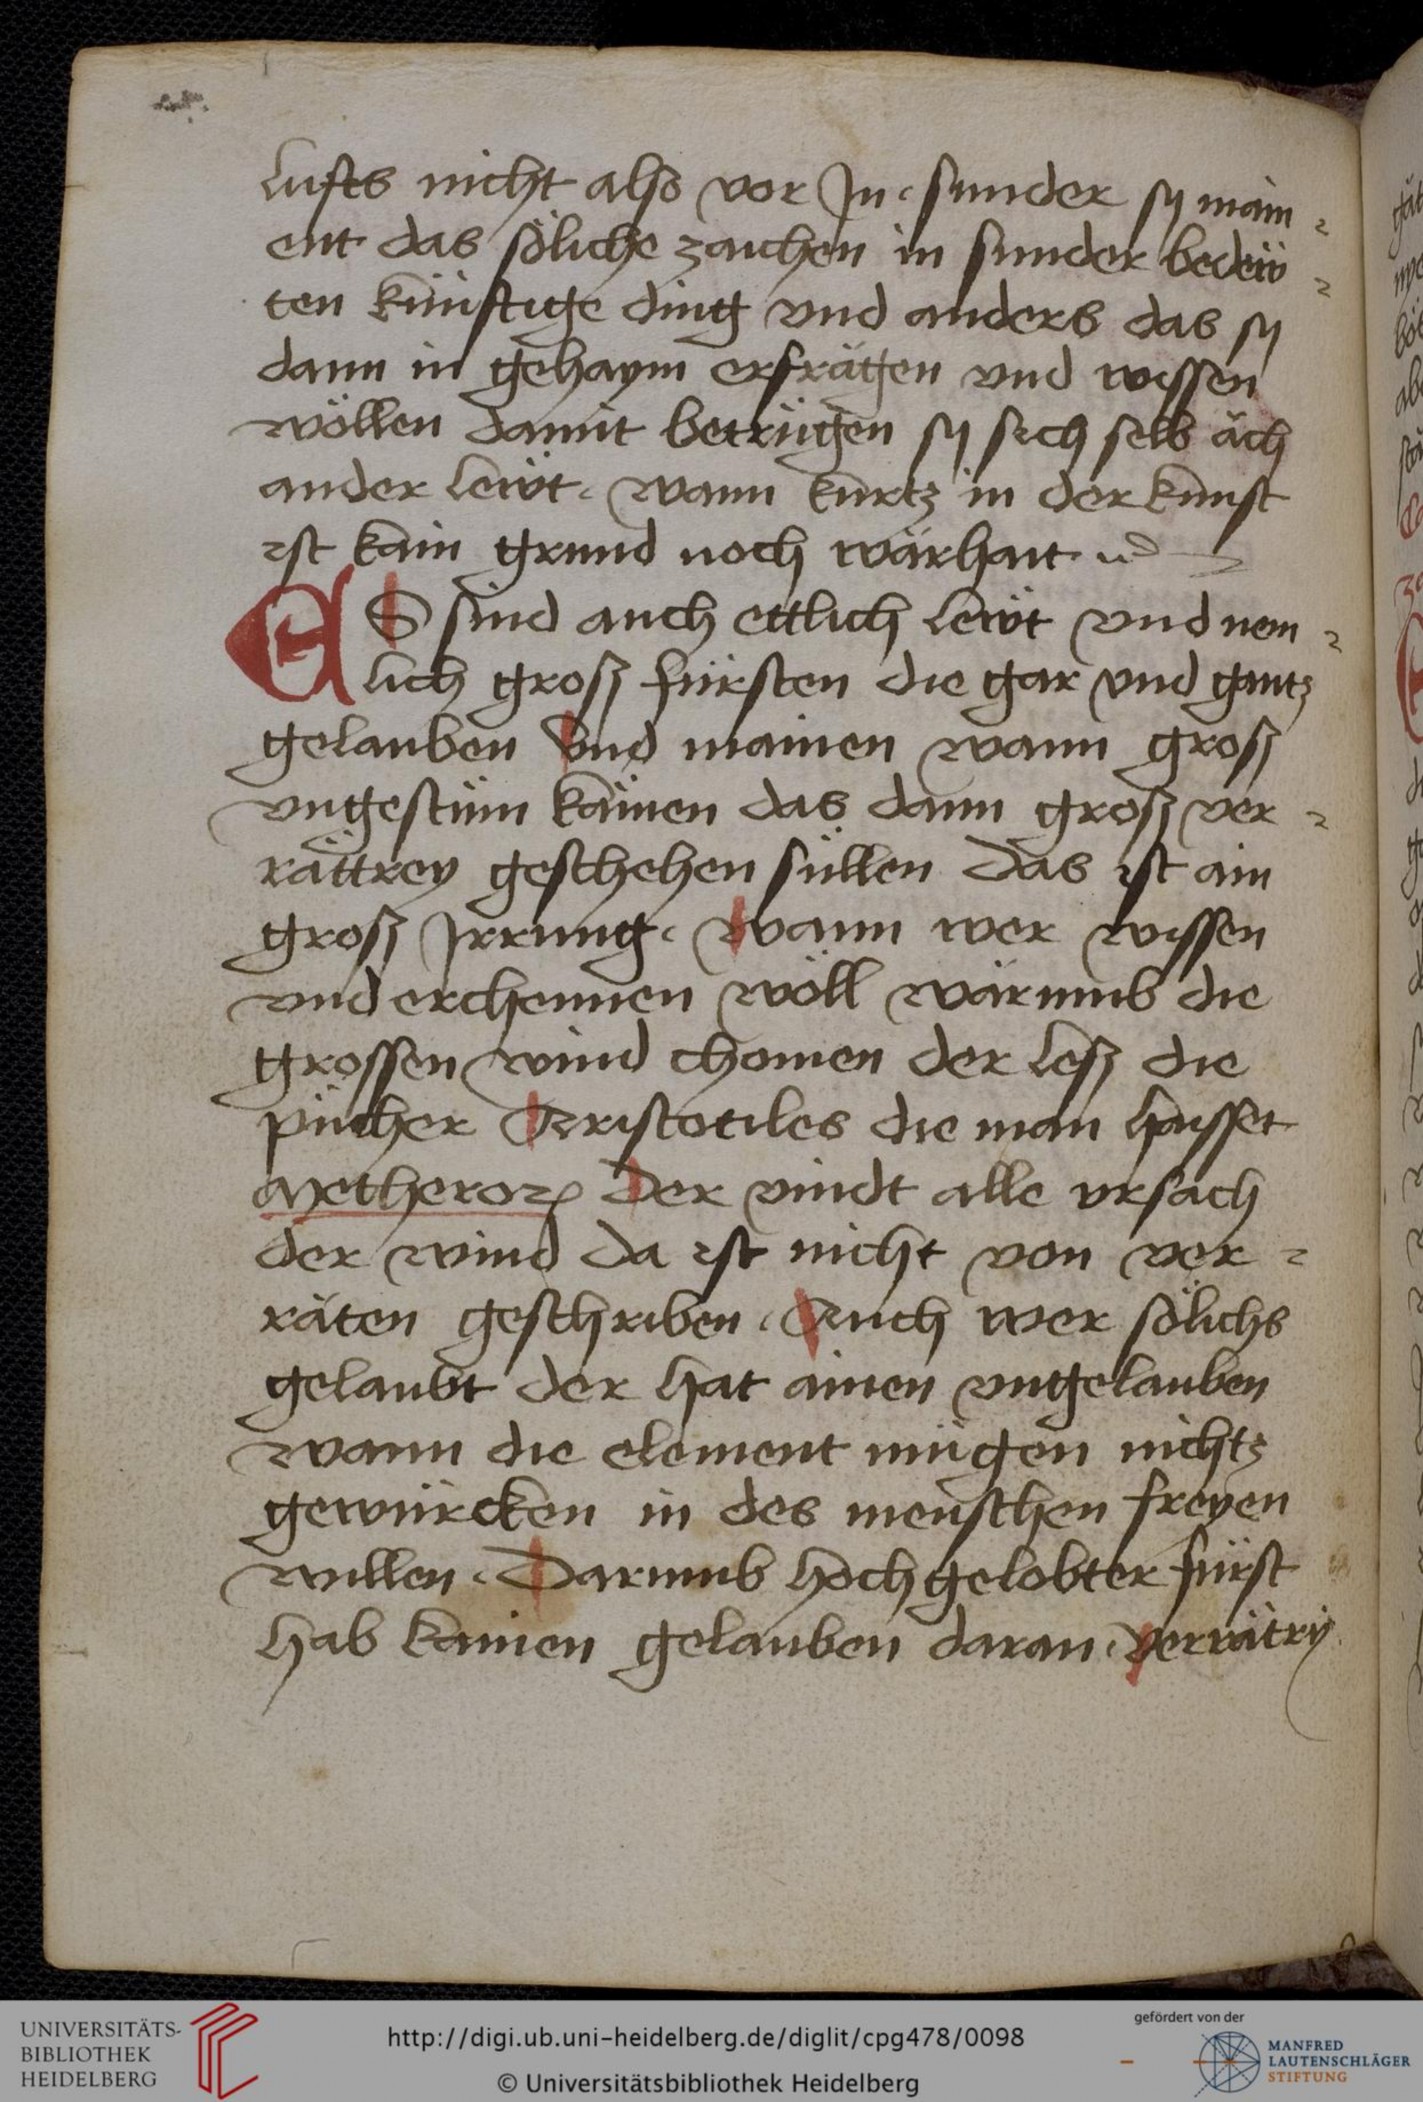 lufts nicht also vor In. sunder sy main⸗
ent das söliche zaichen in sunder bedeẅ⸗
ten künftige ding vnd anders das sy
dann in gehaym erfrägen vnd wissen
wöllen damit betriegen sy sich selb äch
ander lewt. wann kurtz in der kunst
ist kain grund noch wärhait
ES sind auch ettlich lewt vnd nem⸗
lich groß fürsten die gar vnd gantz
gelauben Vnd mainen wann groß
vngestüm kämen das dann groß ver⸗
rättrey geschehen süllen Das ist ain
groß Irrung. Wann wer wissen
vnd erchennen wöll wärumb die
grossen wind chomen der leß die
pücher Aristotiles die man haisset
Metheororum Der vindt alle vrsach
der wind Da ist nicht von ver⸗
räten geschriben. Auch wer sölichs
gelaubt der hat ainen vngelauben
wann die element mügen nichtz
gewürcken in des menschen freyen
willen. Darumb hochgelobter fürst
hab kainen gelauben daran. Verrätry
UNIVERSITÄTS-
BIBLIOTHEK
HEIDELBERG
http://digi.ub.uni-heidelberg.de/diglit/cpg478/0098
© Universitätsbibliothek Heidelberg
gefördert von der
MANFRED
LAUTENSCHLÄGER
STIFTUNG